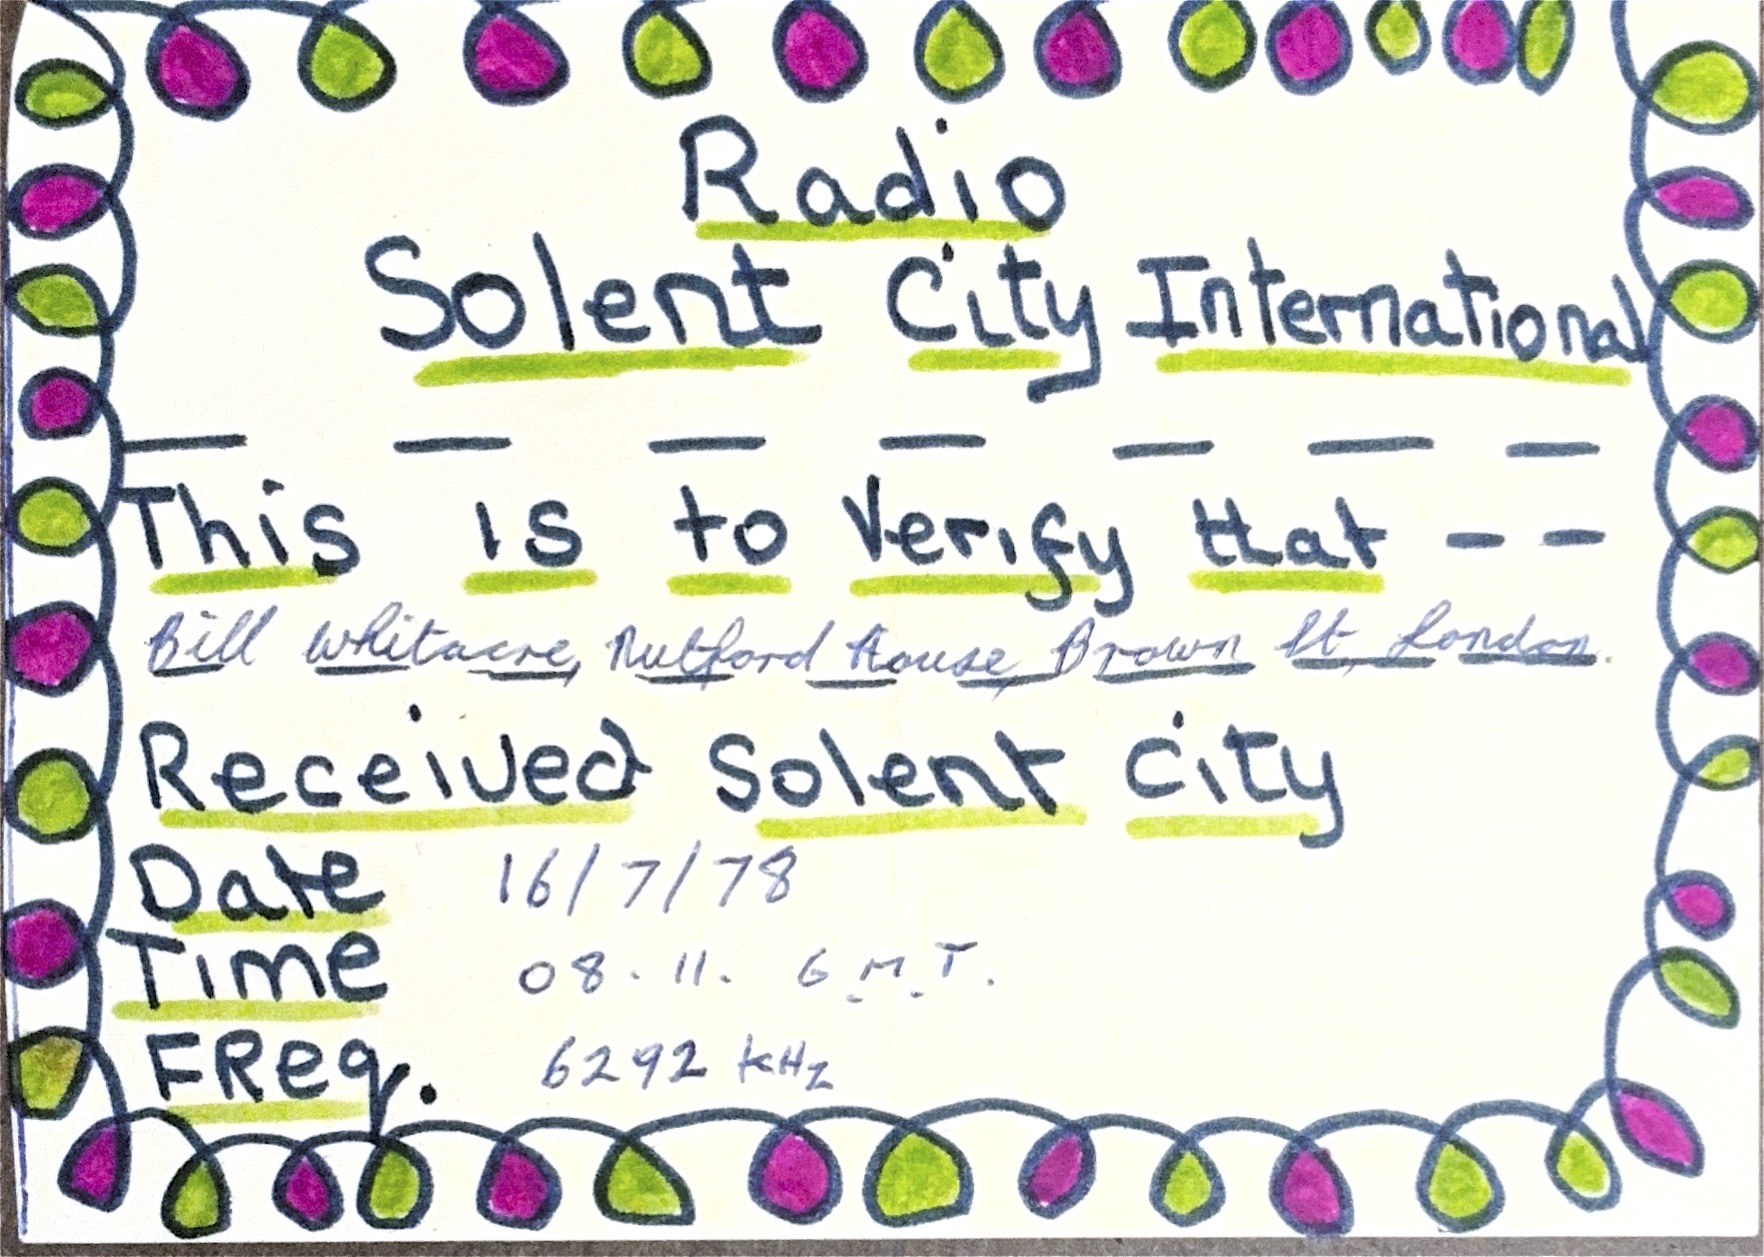 Radio
Solent City International
— — — — — — —
This is to Verify that - -
Bill Whitacre, Nutford House, Brown St, London.
Received Solent City
Date 16/7/78
Time 08.11. G.M.T.
FReq. 6292 kHz